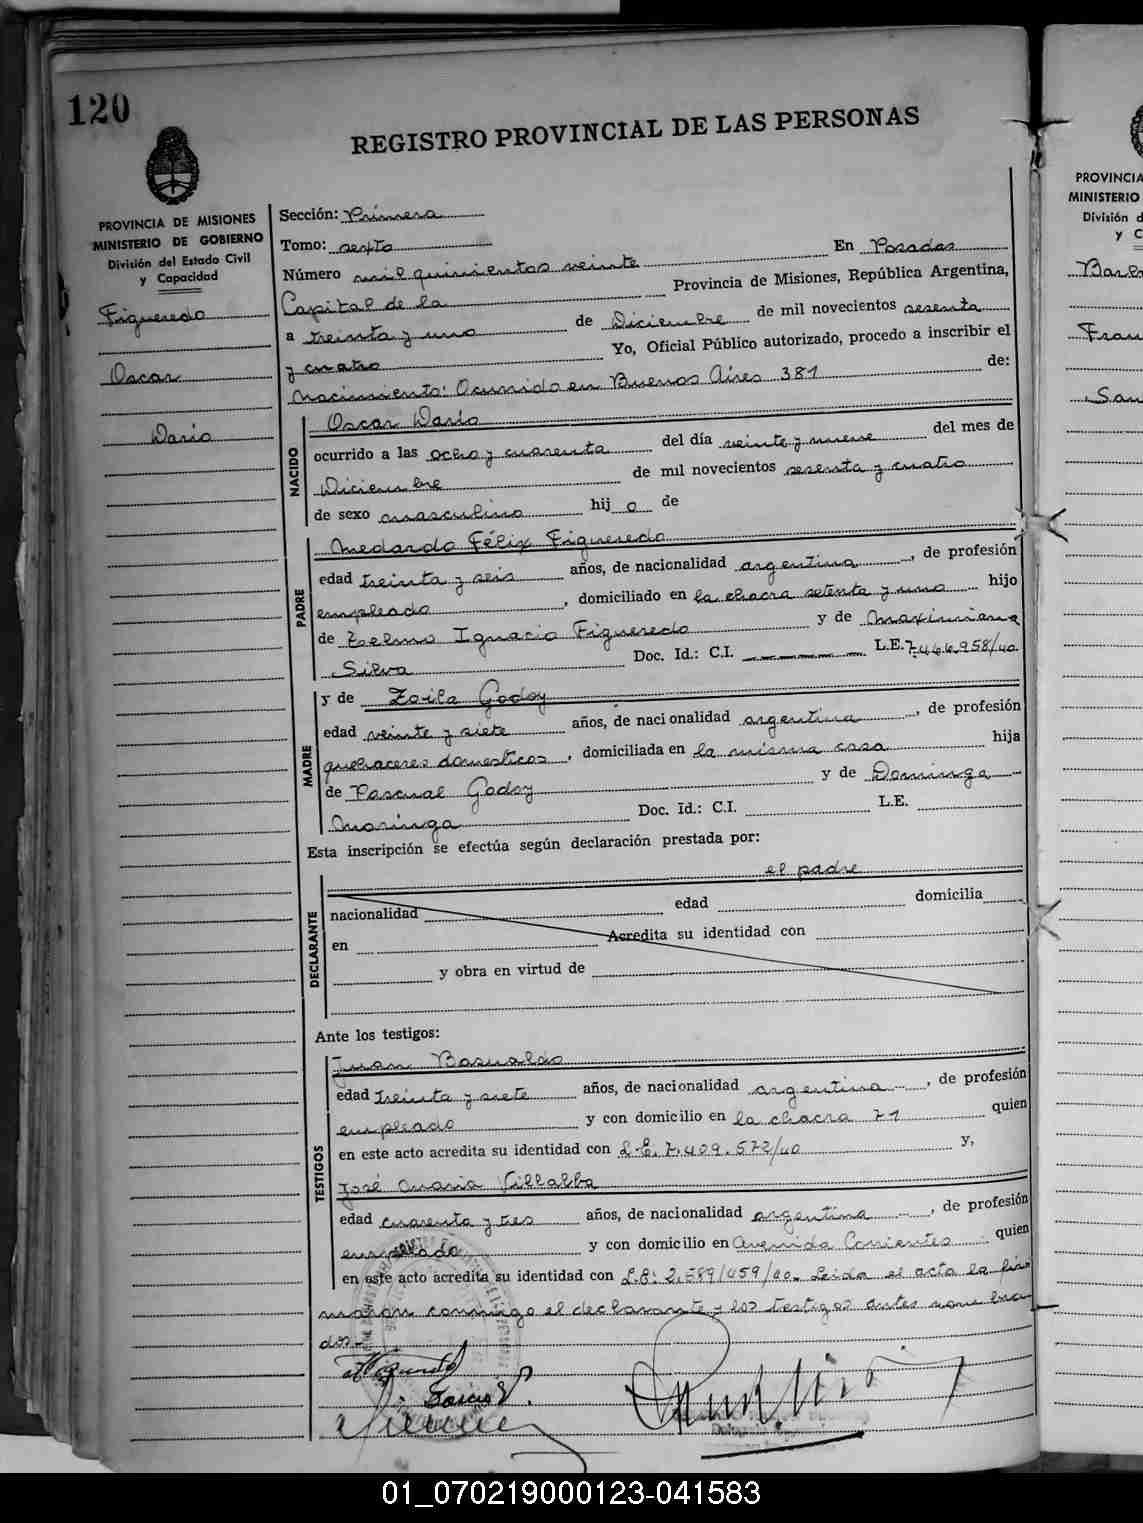 120
REGISTRO PROVINCIAL DE LAS PERSONAS
PROVINCIA DE MISIONES
MINISTERIO DE GOBIERNO
División del Estado Civil
y Capacidad
Figueredo
Oscar
Dario
Sección: Primera
Tomo: sexto En Posadas
Número mil quinientos veinte
Capital de la Provincia de Misiones, República Argentina,
a treinta y uno de Diciembre de mil novecientos sesenta
y cuatro Yo, Oficial Público autorizado, procedo a inscribir el
Nacimiento: Ocurrido en Buenos Aires 381 de:
NACIDO
Oscar Dario
ocurrido a las ocho y cuarenta del día veinte y nueve del mes de
Diciembre de mil novecientos sesenta y cuatro
de sexo masculino hij o de
PADRE
Medardo Félix Figueredo
edad treinta y seis años, de nacionalidad argentina, de profesión
empleado, domiciliado en la chacra setenta y uno hijo
de Telmo Ignacio Figueredo y de Maximiana
Silva Doc. Id.: C.I. L.E. 7.466.958/40
MADRE
y de Zoila Godoy
edad veinte y siete años, de nacionalidad argentina, de profesión
quehaceres domesticos, domiciliada en la misma casa hija
de Pascual Godoy y de Dominga
Moringa Doc. Id.: C.I. L.E.
Esta inscripción se efectúa según declaración prestada por:
el padre
DECLARANTE
nacionalidad edad domicilia
en Acredita su identidad con
y obra en virtud de
Ante los testigos:
TESTIGOS
Juan Basualdo
edad treinta y siete años, de nacionalidad argentina, de profesión
empleado y con domicilio en la chacra 71 quien
en este acto acredita su identidad con L.E. 7.409.572/40 y,
José Maria Villalba
edad cuarenta y tres años, de nacionalidad argentina, de profesión
empleado y con domicilio en Avenida Corrientes quien
en este acto acredita su identidad con L.E: 2.589/459/40. Leida el acta la fir
maron conmigo el declarante y los testigos antes nombra
dos.-
PROVINCIA
MINISTERIO
División d
y C
Barb
Fran
San
01_070219000123-041583